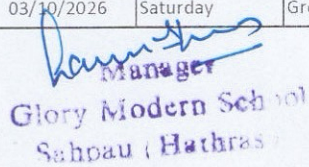 03/10/2026 Saturday Gr
Manager
Glory Modern School
Sahpau ( Hathras